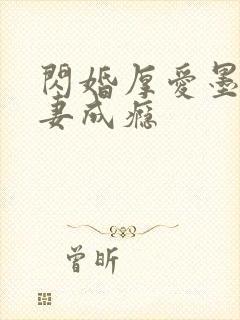 閃婚厚愛墨
妻成癮
曾昕